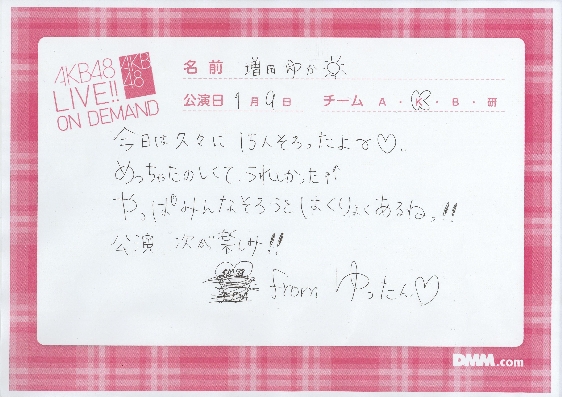 AKB48
LIVE!!
ON DEMAND
AKB
48
名前 増田有華
公演日 9月9日 チーム A・K・B・研
今日は久々に15人そろったよで♡
めっちゃたのしくて、うれしかったァ
やっぱみんなそろうとはくりょくあるねっ!!
公演 次が楽しみ!!
from ゆったん♡
DMM.com